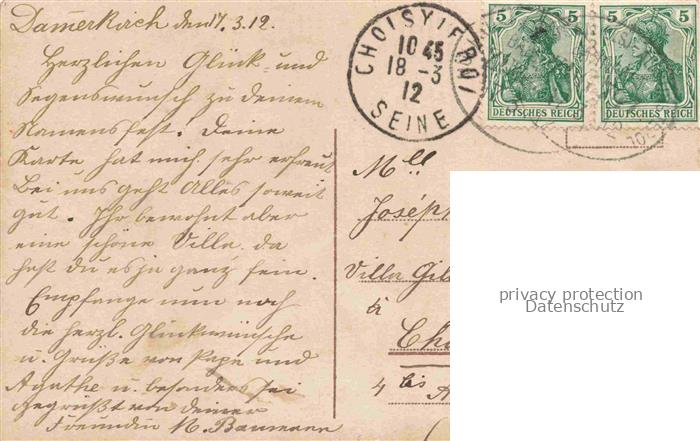 Dam̅erkirch den 17.3.12.
Herzlichen Glück- und
Segenswunsch zu deinem
Namensfest. Deine
Karte hat mich sehr erfreut
bei uns geht Alles soweit
gut. Ihr bewohnt aber
eine schöne Villa, da
hast du es ja ganz fein.
Empfange nun noch
die herzl. Glückwünsche
u. Grüße von Papa und
Agathe u. besonders sei
gegrüßt von deiner
Freundin M. Baumann
CHOISY LE ROI
10 45
18 -3
12
SEINE
5 5
DEUTSCHES REICH
5 5
DEUTSCHES REICH
Mlle
Joséph
Villa Gil
à
Cho
4 bis A
privacy protection
Datenschutz